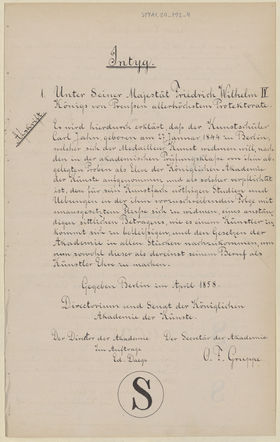 Intyg.
1. Unter Seiner Majestät Friedrich Wilhelm IV
Königs von Preußen allerhöchstem Protektorate.
Abschrift
Es wird hierdurch erklärt, daß der Kunstschüler
Carl Jahn, geboren am 17. Januar 1844 zu Berlin,
welcher sich der Medailleur Kunst widmen will, nach
den in der akademischen Prüfungsklasse von ihm ab-
gelegten Proben als Eleve der Königlichen Akademie
der Künste aufgenommen, und als solcher verpflichtet
ist, den für sein Kunstfach nöthigen Studien und
Uebungen in der ihm vorzuschreibenden Folge mit
unausgesetztem Fleiße sich zu widmen, eines anstän-
digen sittlichen Betragens, wie es einem Künstler zu-
kommt sich zu befleißigen, und den Gesetzen der
Akademie in allen Stücken nachzukommen, um
nun sowohl dieser als dereinst seinem Beruf als
Künstler Ehre zu machen.
Gegeben Berlin im April 1858.
Directorium und Senat der Königlichen
Akademie der Künste.
Der Director der Akademie Der Secretär der Akademie
Im Auftrage
Ed. Daege O. F. Gruppe
S